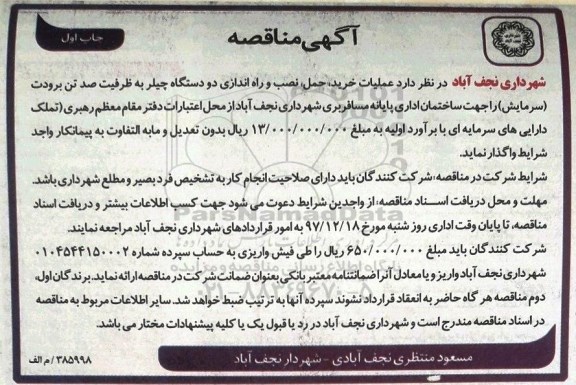 چاپ اول
آگهی مناقصه
شهرداری نجف آباد در نظر دارد عملیات خرید، حمل، نصب و راه اندازی دو دستگاه چیلر به ظرفیت صد تن برودت
(سرمایش) را جهت ساختمان اداری پایانه مسافربری شهرداری نجف آباد از محل اعتبارات دفتر مقام معظم رهبری (تملک
دارایی های سرمایه ای با برآورد اولیه به مبلغ ۱۳/۰۰۰/۰۰۰/۰۰۰ ریال بدون تعدیل و مابه التفاوت به پیمانکار واجد
شرایط واگذار نماید.
شرایط شرکت در مناقصه: شرکت کنندگان باید دارای صلاحیت انجام کار به تشخیص فرد بصیر و مطلع شهرداری باشد.
مهلت و محل دریافت اسناد مناقصه: از واجدین شرایط دعوت می شود جهت کسب اطلاعات بیشتر و دریافت اسناد
مناقصه، تا پایان وقت اداری روز شنبه مورخ ۹۷/۱۲/۱۸ به امور قراردادهای شهرداری نجف آباد مراجعه نمایند.
شرکت کنندگان باید مبلغ ۶۵۰/۰۰۰/۰۰۰ ریال را طی فیش واریزی به حساب سپرده شماره ۰۱۰۴۵۴۴۱۵۰۰۰۲
شهرداری نجف آباد واریز و یا معادل آنرا ضمانتنامه معتبر بانکی بعنوان ضمانت شرکت در مناقصه ارائه نماید. برندگان اول،
دوم مناقصه هر گاه حاضر به انعقاد قرارداد نشوند سپرده آنها به ترتیب ضبط خواهد شد. سایر اطلاعات مربوط به مناقصه
در اسناد مناقصه مندرج است و شهرداری نجف آباد در رد یا قبول یک یا کلیه پیشنهادات مختار می باشد.
مسعود منتظری نجف آبادی - شهردار نجف آباد
۳۸۵۹۹۸/ م الف
ParsNamadData
۰۲۱-۸۸۳۴۹۶۷۰-۵